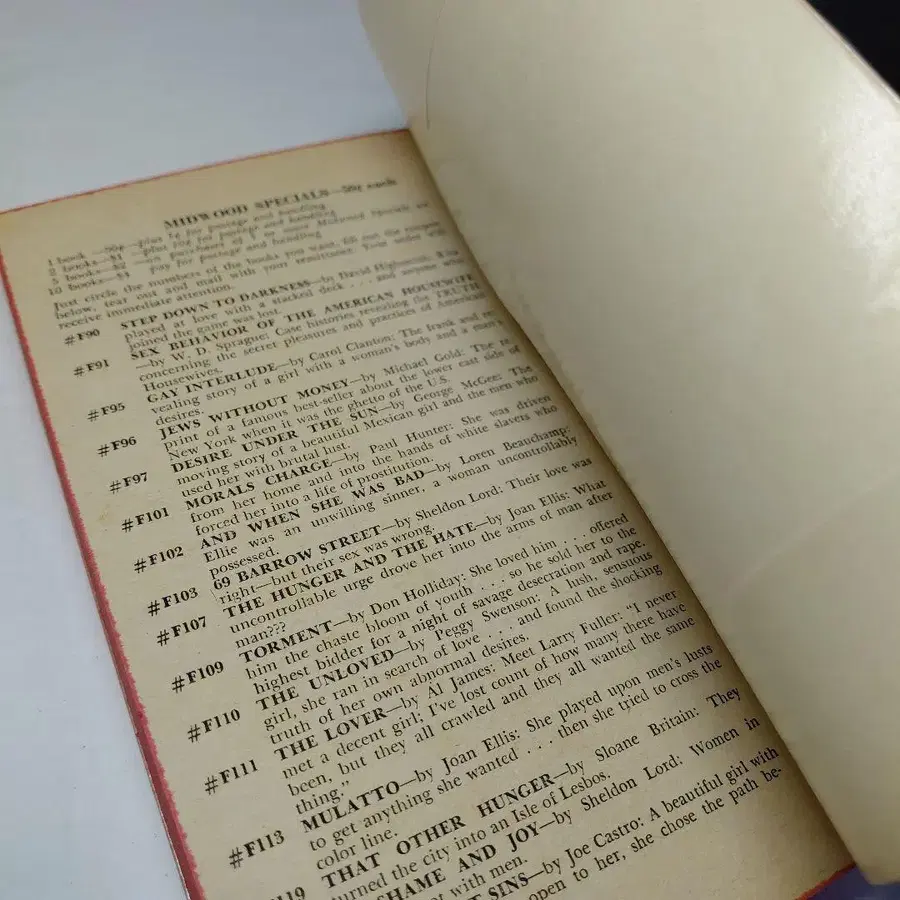 MIDWOOD SPECIALS—50¢ each
1 book —50¢—plus 5¢ for postage and handling
2 books—$1 —plus 10¢ for postage and handling
5 books—$2 —on purchases of 5 or more Midwood Specials we
10 books—$4 pay for postage and handling
Just circle the numbers of the books you want, fill out the coupon
below, tear out and mail with your remittance. Your order will
receive immediate attention.
#F90 STEP DOWN TO DARKNESS—by David
played at love with a stacked deck . . . and anyone who
joined the game was lost.
#F91 SEX BEHAVIOR OF THE AMERICAN HOUSEWIFE
—by W. D. Sprague: Case histories revealing the TRUTH
concerning the secret pleasures and practices of American
Housewives.
#F95 GAY INTERLUDE—by Carol Clanton: The frank and re-
vealing story of a girl with a woman's body and a man's
desires.
#F96 JEWS WITHOUT MONEY—by Michael Gold: The re-
print of a famous best-seller about the lower east side of
New York when it was the ghetto of the U.S.
#F97 DESIRE UNDER THE SUN—by George McGee: The
moving story of a beautiful Mexican girl and the men who
used her with brutal lust.
#F101 MORALS CHARGE—by Paul Hunter: She was driven
from her home and into the hands of white slavers who
forced her into a life of prostitution.
#F102 AND WHEN SHE WAS BAD—by Loren Beauchamp:
Ellie was an unwilling sinner, a woman uncontrollably
possessed.
#F103 69 BARROW STREET—by Sheldon Lord: Their love was
right—but their sex was wrong.
#F107 THE HUNGER AND THE HATE—by Joan Ellis: What
uncontrollable urge drove her into the arms of man after
man???
#F109 TORMENT—by Don Holliday: She loved him . . . offered
him the chaste bloom of youth . . . so he sold her to the
highest bidder for a night of savage desecration and rape.
#F110 THE UNLOVED—by Peggy Swenson: A lush, sensuous
girl, she ran in search of love . . . and found the shocking
truth of her own abnormal desires.
#F111 THE LOVER—by Al James: Meet Larry Fuller: "I never
met a decent girl; I've lost count of how many there have
been, but they all crawled and they all wanted the same
thing."
#F113 MULATTO—by Joan Ellis: She played upon men's lusts
to get anything she wanted . . . then she tried to cross the
color line.
119 THAT OTHER HUNGER—by Sloane Britain: They
turned the city into an Isle of Lesbos.
SHAME AND JOY—by Sheldon Lord: Women in
with men.
SINS—by Joe Castro: A beautiful girl with
open to her, she chose the path be-